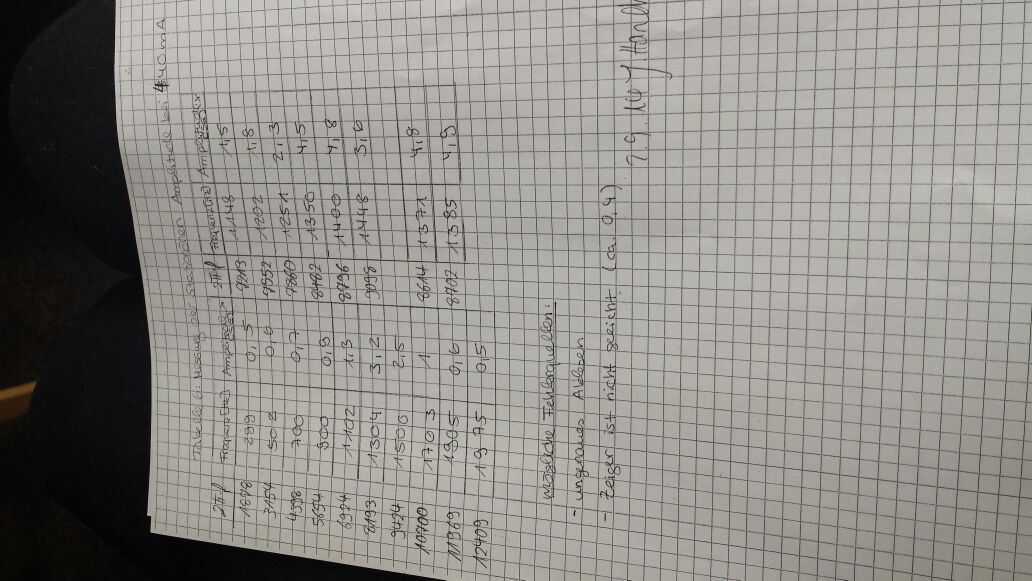 Tabelle 6: Messung der stationären Amplitude bei 440mA
2π·f Frequenz(Hz) Amplituden 2π·f Frequenz(Hz) Amplituden
1878 299 0,5 7213 1148 1,5
3154 502 0,6 7552 1202 1,8
4398 700 0,7 7860 1251 2,3
5654 900 0,9 8482 1350 4,5
6924 1102 1,3 8796 1400 4,8
8193 1304 3,2 9098 1448 3,6
9424 1500 2,5
10700 1703 1 8614 1371 4,8
11969 1905 0,6 8702 1385 4,9
12409 1975 0,5
mögliche Fehlerquellen:
- ungenaues Ablesen
- Zeiger ist nicht geeicht (ca. 0,4)